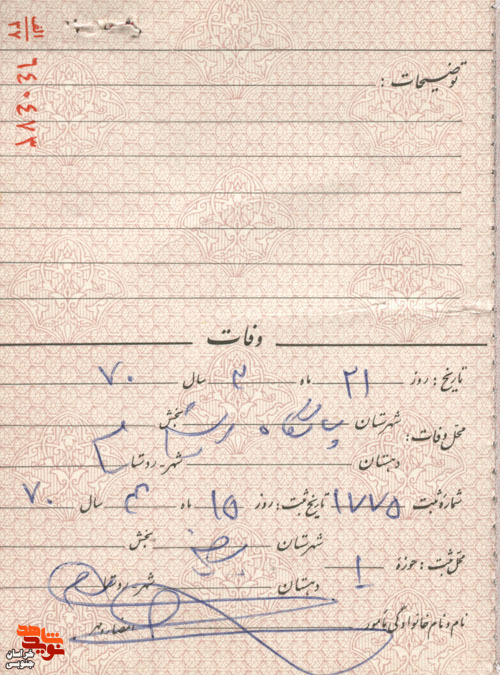 الف
۳۷
۳۸۴۰۴۶
توضیحات :
وفات
تاریخ : روز ۲۱ ماه ۳ سال ۷۰
محل وفات : شهرستان پاسگاه بخش
دهستان شهر-روستا
شمارهٔ ثبت ۱۷۷۵ تاریخ ثبت : روز ۱۵ ماه ۴ سال ۷۰
محل ثبت : حوزهٔ ۱ شهرستان بیرجند بخش
دهستان شهر-روستا
نام و نام خانوادگی مأمور امضاء و مهر
نوید شاهد
خراسان
جنوبی